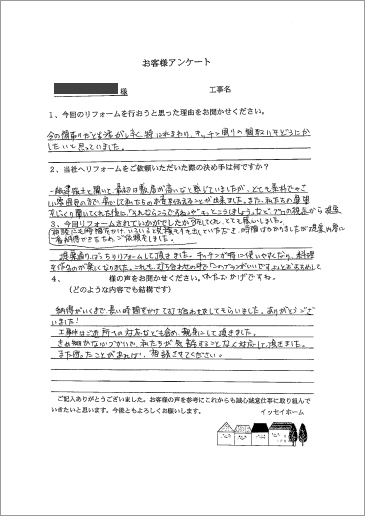 お客様アンケート
様 工事名
1、今回のリフォームを行おうと思った理由をお聞かせください。
今の間取りだと生活がしにくく 特に水まわり、キッチン周りの間取りをどうにか
したいと思っていました。
2、当社へリフォームをご依頼いただいた際の決め手は何ですか?
一級建築士と聞いて 最初は敷居が高いなと感じていましたが、とても気さくで
じっくり聞いてくれた後に"それならこうですね"や"こうしましょう"など プロの視点から提案
3、今回リフォームされていかがでしたか
してくれ、とても頼もしかった。
相談にも時間をかけ、いろいろと見積もりも出していただき、時間はかかりましたが
一番納得できたためご依頼をしました。
提案通りばっちりリフォームして頂きました。キッチンが特に使いやすくなり、料理
を作るのが楽しくなりました。これも、打ち合わせの中で
4、 様の声をお聞かせください。
(どのような内容でも結構です)
納得がいくまで長い時間をかけて打ち合わせをしてもらいました。ありがとうござ
いました!
工事中はご近所への対応なども含め、親身にして頂きました。
きめ細かな気づかいで、私たちが気疲れすることなく対応して頂きました。
また困ったことがあれば、相談させてください。
ご記入ありがとうございました。お客様の声を参考にこれからも誠心誠意仕事に取り組んで
いきたいと思います。今後ともよろしくお願いします。 イッセイホーム